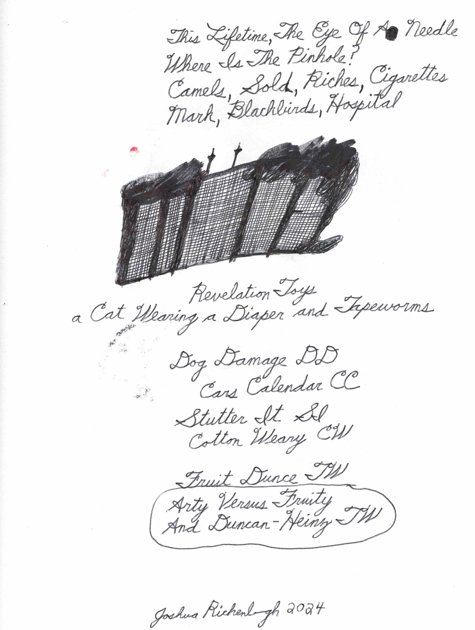 This Lifetime, The Eye Of A Needle
Where Is The Pinhole?
Camels, Sold, Riches, Cigarettes
Mark, Blackbirds, Hospital
Revelation Toys
a Cat Wearing a Diaper and Tapeworms
Dog Damage DD
Cars Calendar CC
Stutter It SI
Cotton Weary CW
Fruit Dunce TW
Arty Versus Fruity
And Duncan-Heinz TW
Joshua 2024